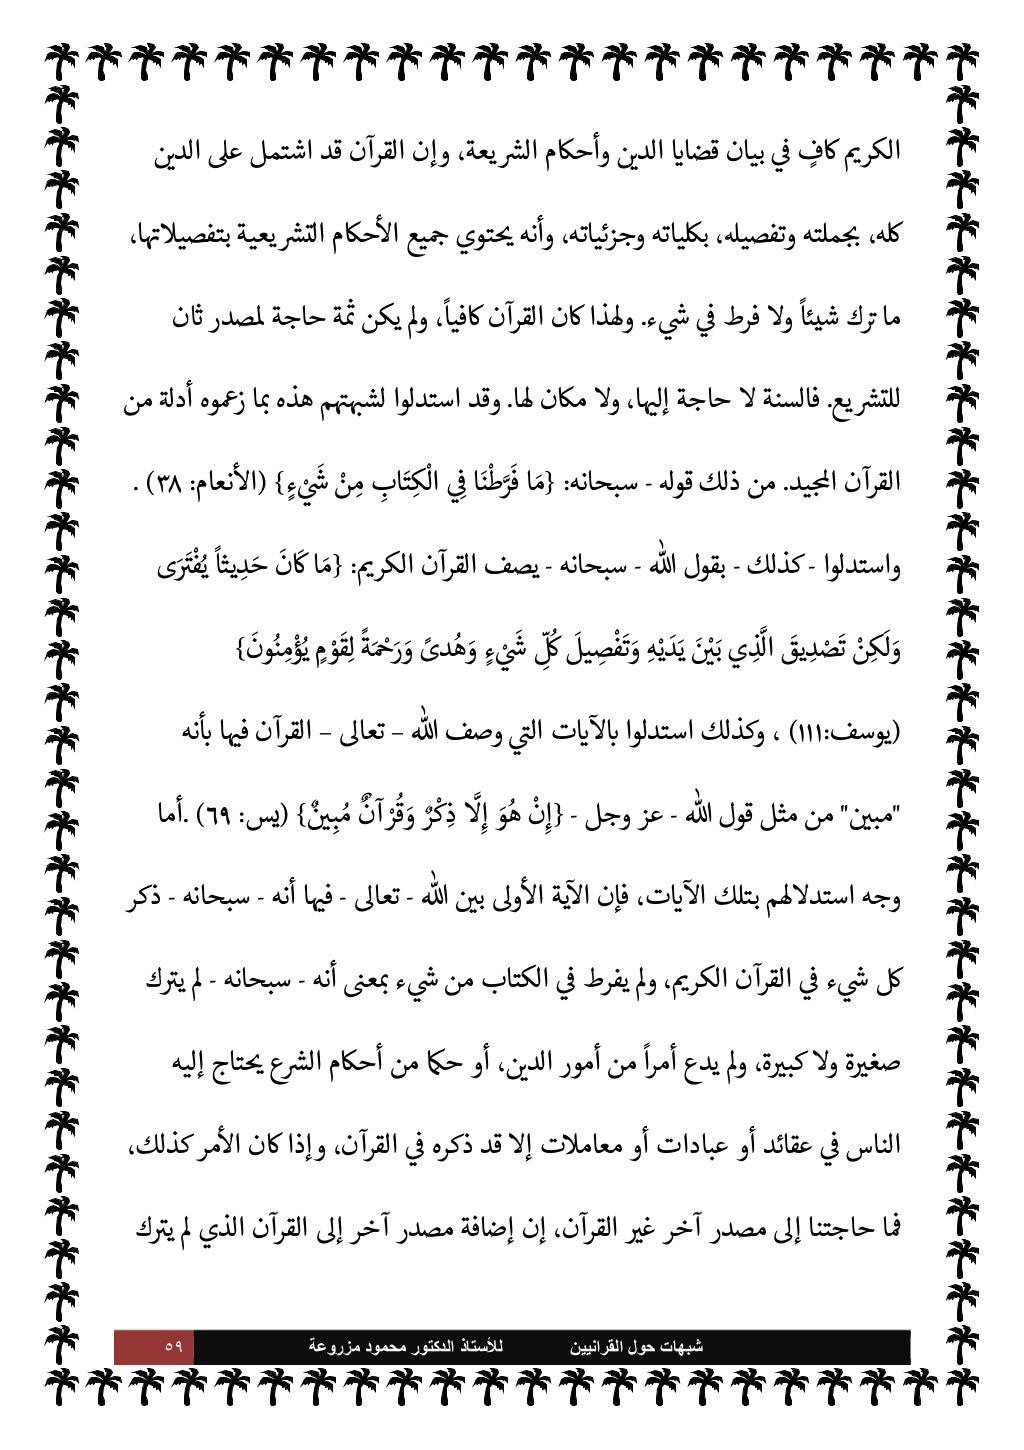 الكريم كافٍ في بيان قضايا الدين وأحكام الشريعة، وإن القرآن قد اشتمل على الدين
كله، بجملته وتفصيله، بكلياته وجزئياته، وأنه يحتوي جميع الأحكام التشريعية بتفصيلاتها،
ما ترك شيئاً ولا فرط في شيء. ولهذا كان القرآن كافياً، ولم يكن ثمة حاجة لمصدر ثان
للتشريع. فالسنة لا حاجة إليها، ولا مكان لها. وقد استدلوا لشبهتهم هذه بما زعموه أدلة من
القرآن المجيد. من ذلك قوله - سبحانه: {مَا فَرَّطْنَا فِي الْكِتَابِ مِنْ شَيْءٍ} (الأنعام: ٣٨) .
واستدلوا - كذلك - بقول الله - سبحانه - يصف القرآن الكريم: {مَا كَانَ حَدِيثاً يُفْتَرَى
وَلَكِنْ تَصْدِيقَ الَّذِي بَيْنَ يَدَيْهِ وَتَفْصِيلَ كُلِّ شَيْءٍ وَهُدىً وَرَحْمَةً لِقَوْمٍ يُؤْمِنُونَ}
(يوسف:١١١) ، وكذلك استدلوا بالآيات التي وصف الله – تعالى – القرآن فيها بأنه
"مبين" من مثل قول الله - عز وجل - {إِنْ هُوَ إِلَّا ذِكْرٌ وَقُرْآنٌ مُبِينٌ} (يس: ٦٩) .أما
وجه استدلالهم بتلك الآيات، فإن الآية الأولى بين الله - تعالى - فيها أنه - سبحانه - ذكر
كل شيء في القرآن الكريم، ولم يفرط في الكتاب من شيء بمعنى أنه - سبحانه - لم يترك
صغيرة ولا كبيرة، ولم يدع أمراً من أمور الدين، أو حكما من أحكام الشرع يحتاج إليه
الناس في عقائد أو عبادات أو معاملات إلا قد ذكره في القرآن، وإذا كان الأمر كذلك،
فما حاجتنا إلى مصدر آخر غير القرآن، إن إضافة مصدر آخر إلى القرآن الذي لم يترك
شبهات حول القرانيين للأستاذ الدكتور محمود مزروعة ٥٩